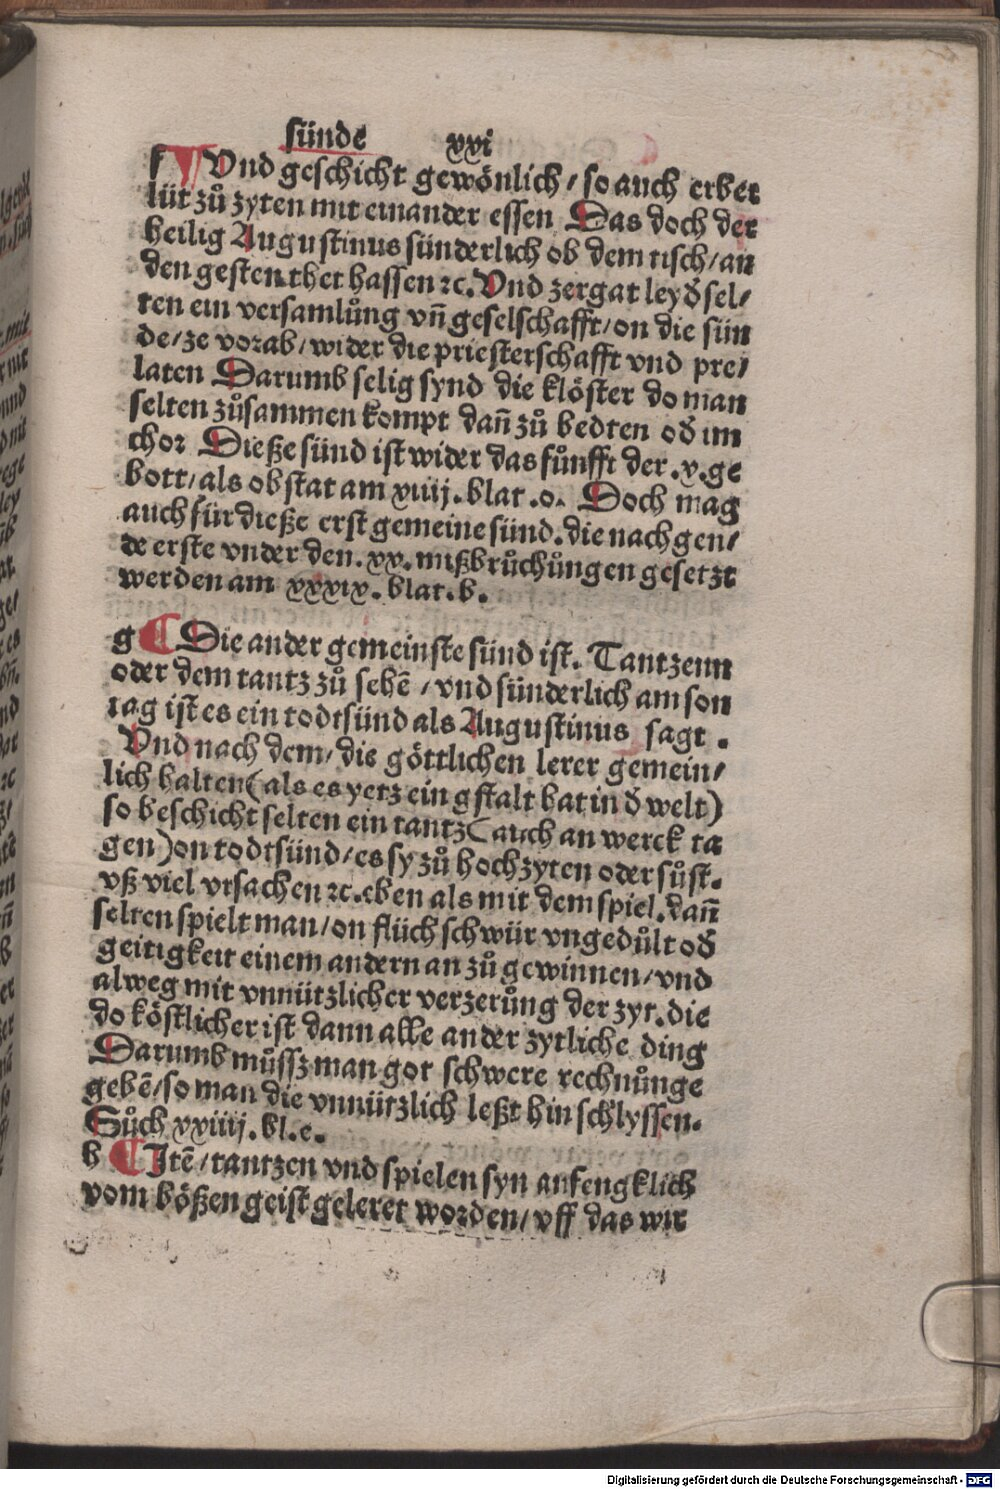 sünde xxi
f Vnd geschicht gewönlich / so auch erber
lüt zů zyten mit einander essen Das doch der
heilig Augustinus sünderlich ob dem tisch / an
den gesten thet hassen ꝛc. Vnd zergat leyð sel⸗
ten ein versamlůng vñ geselschafft / on die sün
de / ze vorab / wider die priesterschafft vnd pre⸗
laten Darumb selig synd die klöster do man
selten zůsammen kompt dañ zů bedten oð im
chor Dieße sünd ist wider das fůnfft der .x. ge
bott / als ob stat am xiiij. blat .o. Doch mag
auch für dieße erst gemeine sünd. die nachgen⸗
de erste vnder den .xx. mißbrůchůngen gesetzt
werden am xxxix. blat. b.
g Die ander gemeinste sünd ist. Tantzenn
oder dem tantz zů sehē / vnd sünderlich am son
tag ist es ein todtsünd als Augustinus sagt .
Vnd nach dem / die göttlichen lerer gemein⸗
lich halten (als es yetz ein gstalt hat in ð welt)
so beschicht selten ein tantz (auch an werck ta
gen) on todtsünd / es sy zů hochzyten oder sůst.
vß viel vrsachen ꝛc. eben als mit dem spiel. dañ
selten spielt man / on flüch schwür vngedůlt oð
geitigkeit einem andern an zů gewinnen / vnd
alweg mit vnnützlicher verzerůng der zyt. die
do köstlicher ist dann alle ander zytliche ding
Darumb můssz man got schwere rechnůnge
gebē / so man die vnnützlich leßt hin schlyssen.
Sůch xxiiij. bl. e.
h Itē / tantzen vnd spielen syn anfengklich
vom bößen geist geleret worden / vff das wir
Digitalisierung gefördert durch die Deutsche Forschungsgemeinschaft - DFG